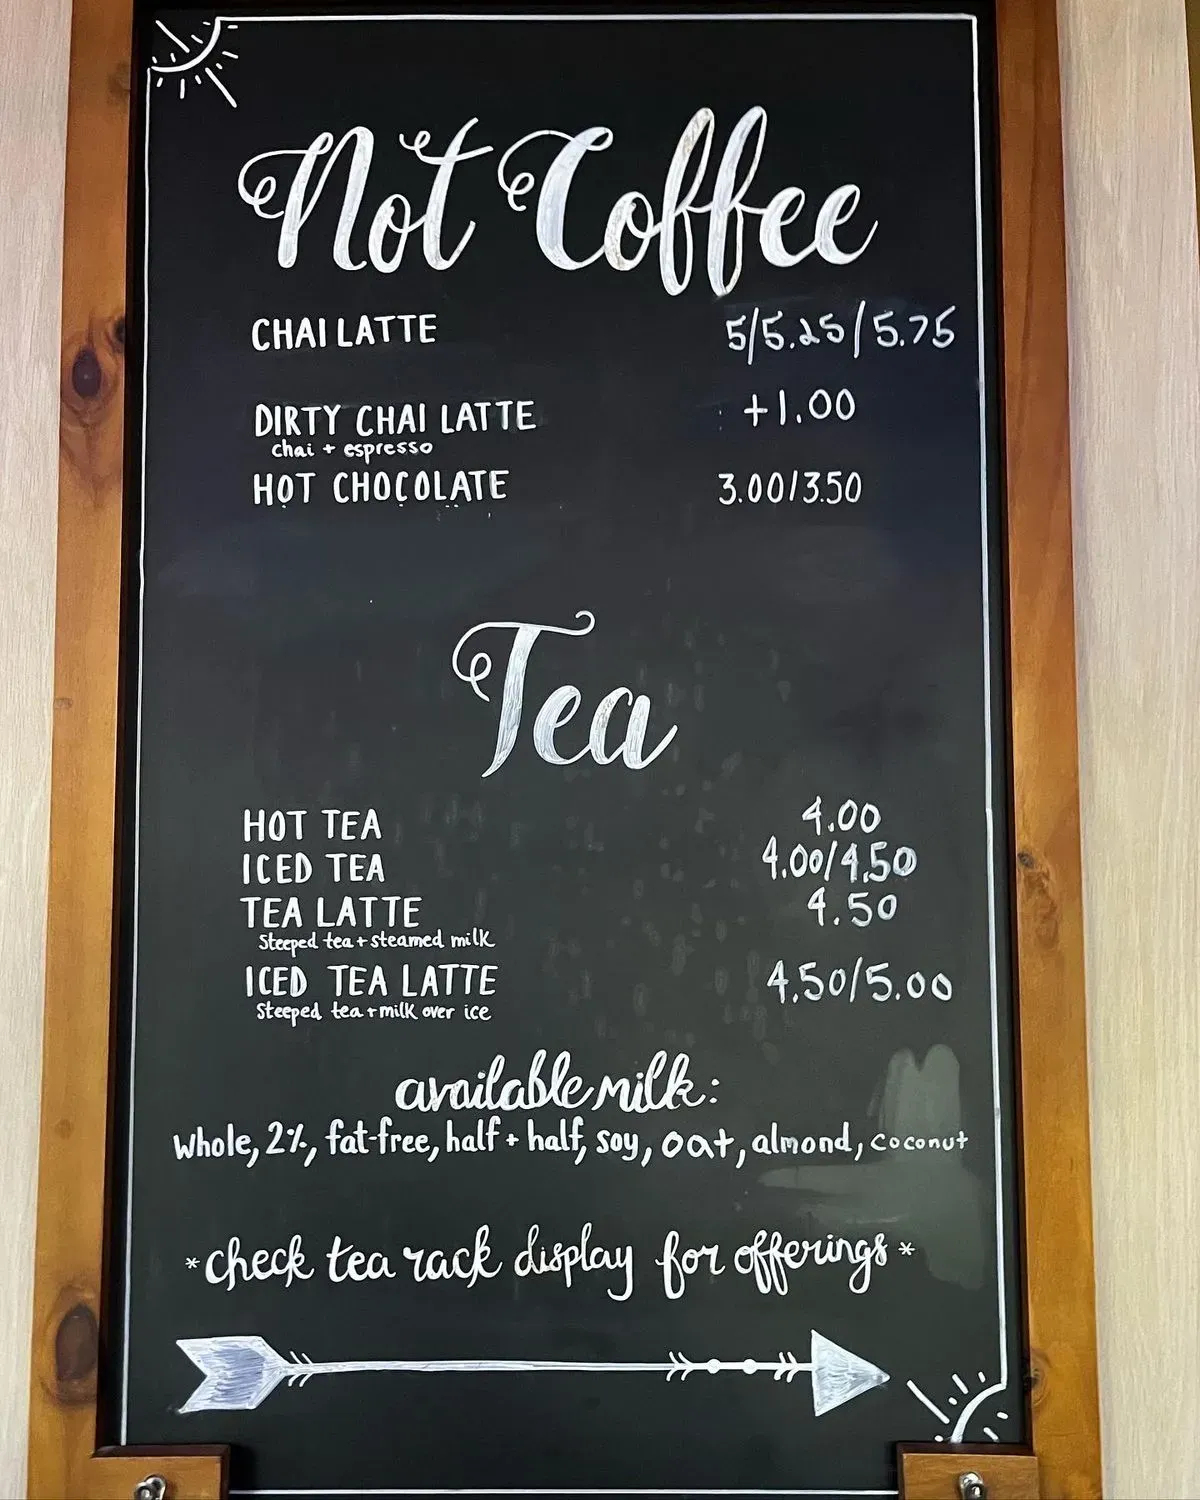 Not Coffee
CHAI LATTE 5/5.25/5.75
DIRTY CHAI LATTE +1.00
chai + espresso
HOT CHOCOLATE 3.00/3.50
Tea
HOT TEA 4.00
ICED TEA 4.00/4.50
TEA LATTE 4.50
Steeped tea + steamed milk
ICED TEA LATTE 4.50/5.00
Steeped tea + milk over ice
available milk:
whole, 2%, fat-free, half + half, soy, oat, almond, coconut
*check tea rack display for offerings*